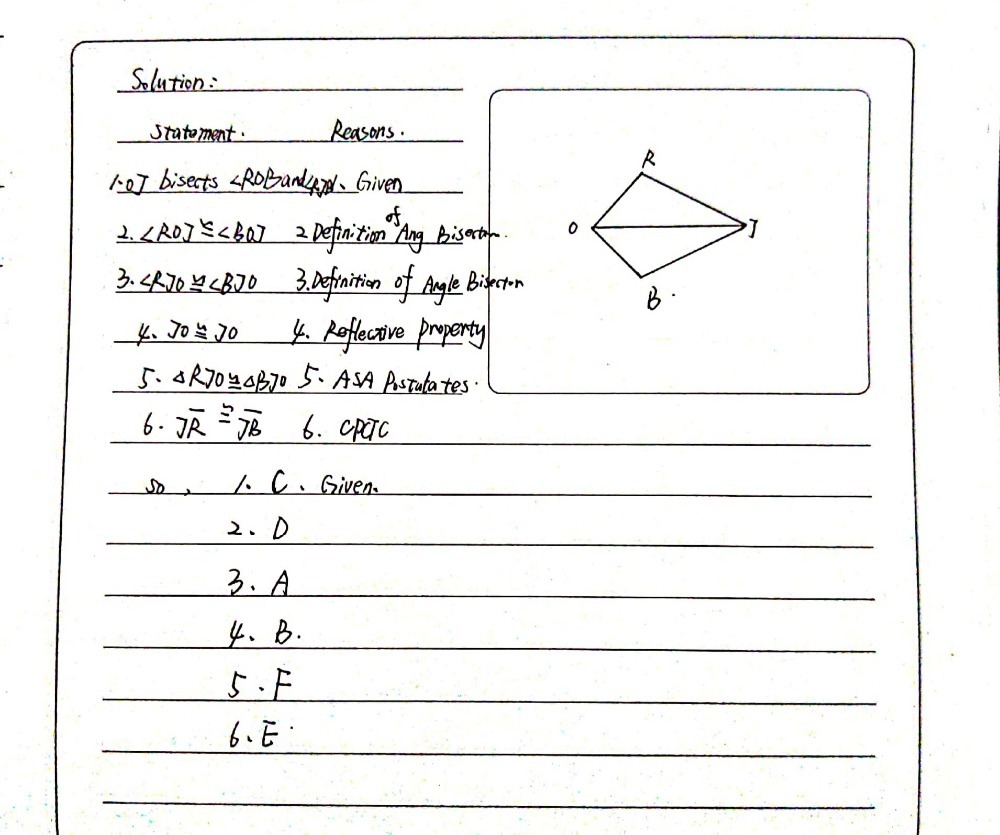 Solution:
Statement. Reasons.
1. OJ bisects <ROB and <RJB、 Given
2. <ROJ ≅ <BOJ 2 Definition of Ang Bisector.
3. <RJO ≅ <BJO 3. Definition of Angle Bisector
4、 JO ≅ JO 4. Reflective property
5. △RJO ≅ △BJO 5. ASA Postulates.
6. JR ≅ JB 6. CPCTC
so, 1. C、 Given.
2、 D
3、 A
4、 B.
5. F
6、 E.
R
O
J
B.